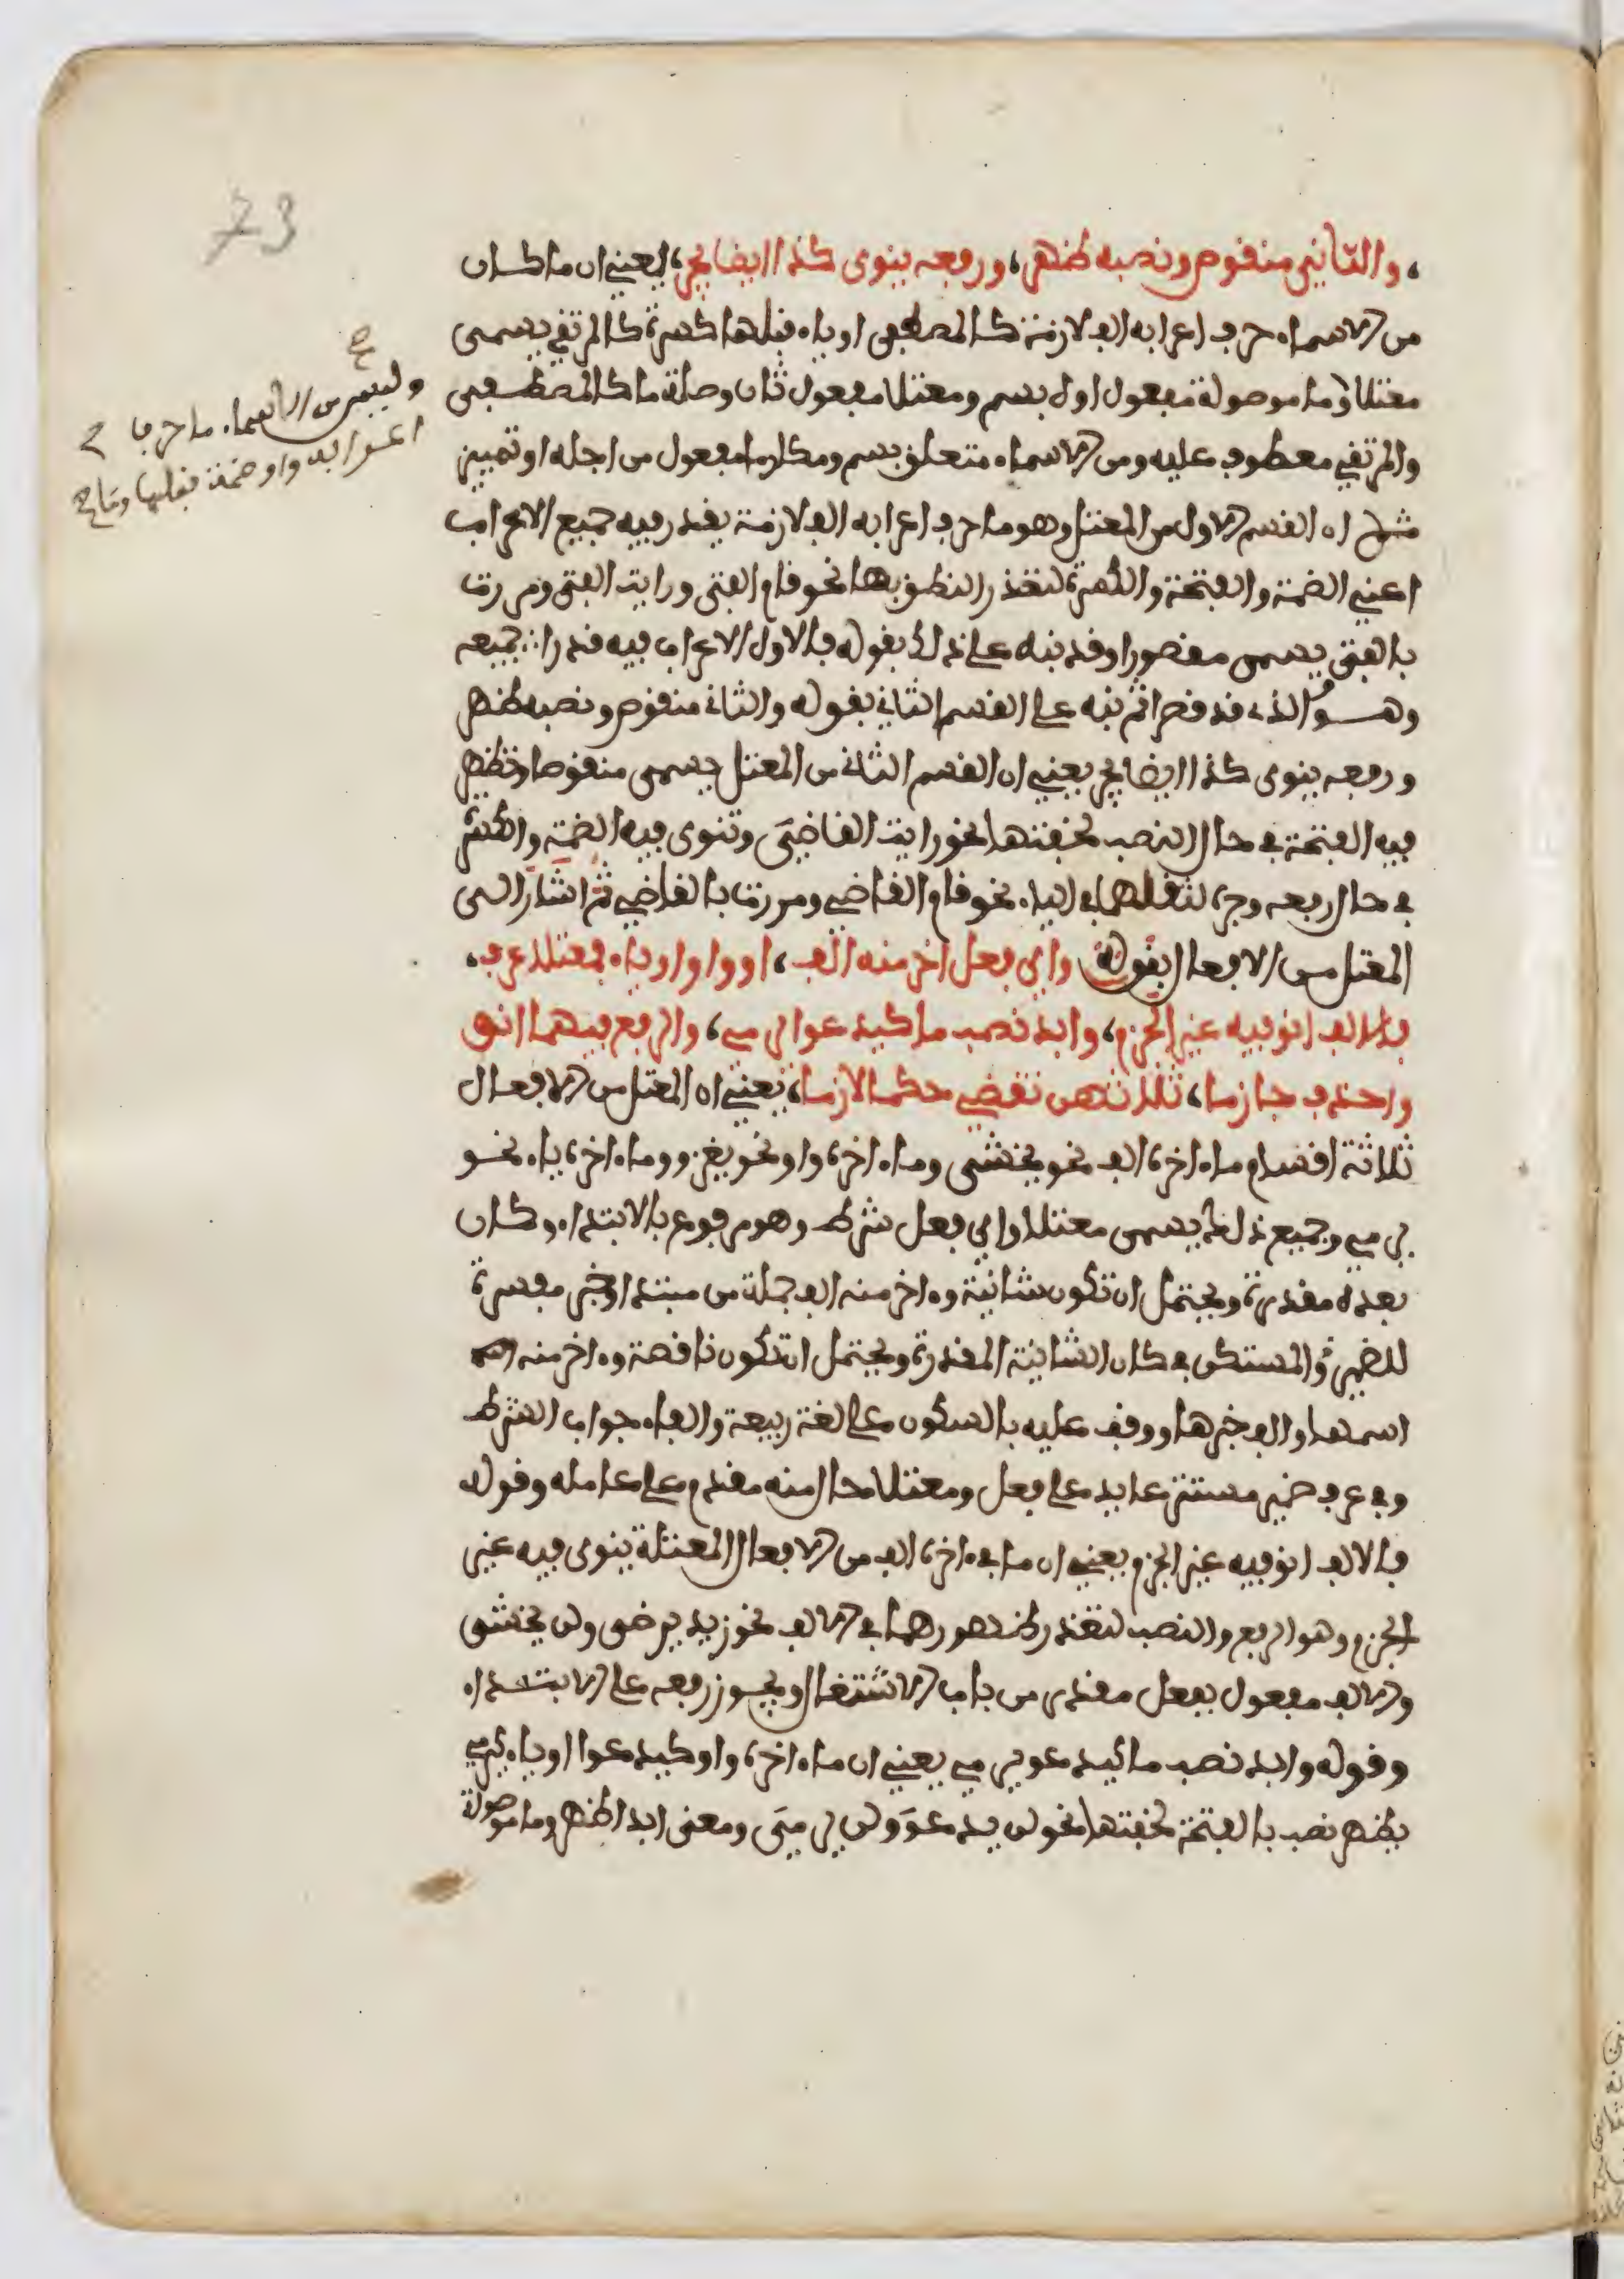 73
، والثاني منقوص ونصبه ظهر، ورفعه ينوى كذا ايضا يجر، يعني ان ما كان
من الاسماء حرف اعرابه الف لازمة كالمصطفى او ياء قبلها كسرة كالمرتقي يسمى
معتلا وما موصولة مفعول اول بسم ومعتلا مفعول ثان وصلة ما كالمصطفى
والمرتقي معطوف عليه ومن الاسماء متعلق بسم ومكارما مفعول من اجله او تمييز
ثم ان القسم الاول من المعتل وهو ما حرف اعرابه الف لازمة يقدر فيه جميع الاعراب
اعني الضمة والفتحة والكسرة لتعذر النطق بها نحو قام الفتى ورايت الفتى ومررت
بالفتى يسمى مقصورا وقد نبه على ذلك بقوله فالاول الاعراب فيه قدرا جميعه
وهو الذي قد قصرا ثم نبه على القسم الثاني بقوله والثاني منقوص ونصبه ظهر
ورفعه ينوى كذا ايضا يجر يعني ان القسم الثاني من المعتل يسمى منقوصا وتظهر
فيه الفتحة في حال النصب لخفتها نحو رايت القاضي وتنوى فيه الضمة والكسرة
في حال رفعه وجره لثقلهما في الياء نحو قام القاضي ومررت بالقاضي ثم اشار الى
المعتل من الافعال بقوله واي فعل اخر منه الف، او واو او ياء فمعتلا عرف،
فالالف انو فيه غير الجزم، وابد نصب ما كيدعو يرمي، والرفع فيهما انو
واحذف جازما، ثلاثهن تقضي حكما لازما، يعني ان المعتل من الافعال
ثلاثة اقسام ما ءاخره الف نحو يخشى وما ءاخره واو نحو يغزو وما ءاخره ياء نحو
يرمي وجميع ذلك يسمى معتلا واي فعل شرط وهو مرفوع بالابتداء وكان
بعده مقدرة ويحتمل ان تكون شانية وءاخر منه الف جملة من مبتدا وخبر مفسرة
للضمير المستكن في كان الشانية المقدرة ويحتمل ان تكون ناقصة وءاخر منه
اسمها والف خبرها ووقف عليه بالسكون على لغة ربيعة والفاء جواب الشرط
وفي عرف ضمير مستتر عايد على فعل ومعتلا حال منه مقدم على عامله وقوله
فالالف انو فيه غير الجزم يعني ان ما في ءاخره الف من الافعال المعتلة ينوى فيه غير
الجزم وهو الرفع والنصب لتعذر ظهورهما في الالف نحو زيد يرضى ولن يخشى
والالف مفعول بفعل مقدر من باب الاشتغال ويجوز رفعه على الابتداء
وقوله وابد نصب ما كيدعو يرمي يعني ان ما ءاخره واو كيدعوا او ياء كيرمي
يظهر نصب بالفتحة لخفتها نحو لن يدعو ولن يرمي ومعنى ابد اظهر وما موصولة
وليس من الاسماء ما حرف
الف واو ضمة قبلها